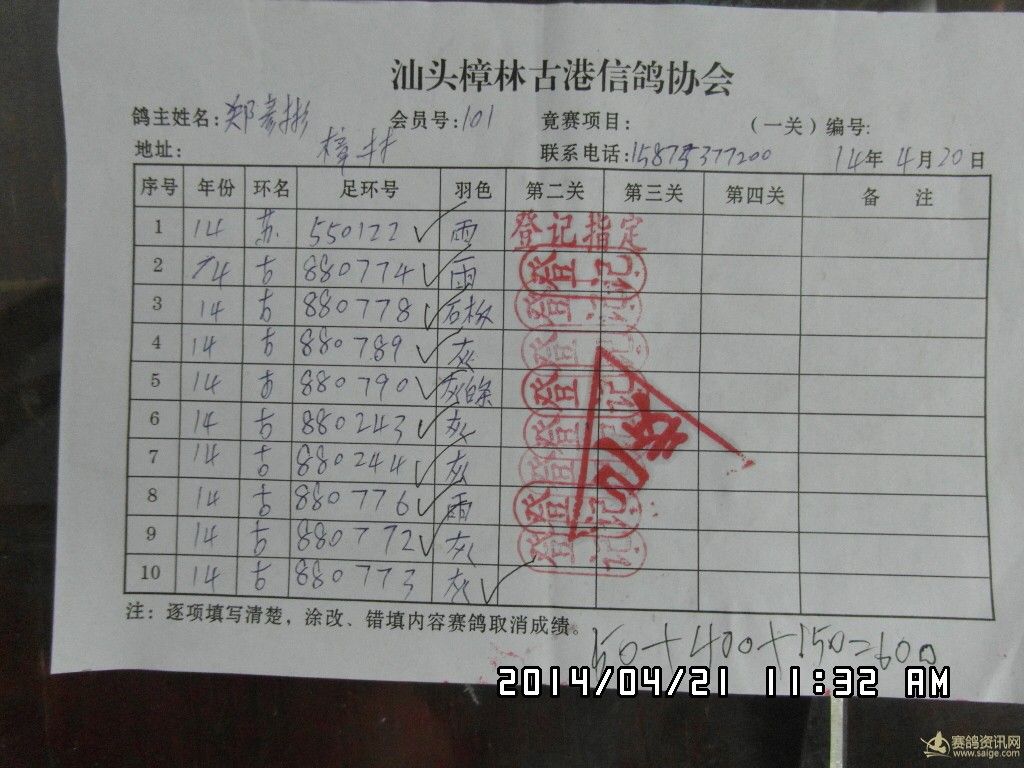 汕头樟林古港信鸽协会
鸽主姓名:郑 彬 会员号:101 竟赛项目: (一关)编号:
地址: 樟林 联系电话: 14年 4月20日
序号 年份 环名 足环号 羽色 第二关 第三关 第四关 备 注
1 14 苏 550122 ✓ 雨 登记指定
2 14 古 880774 ✓ 雨 登记
3 14 古 880778 ✓ 石板 登记
4 14 古 880789 ✓ 灰 登记
5 14 古 880790 ✓ 灰白条 登记
6 14 古 880243 ✓ 灰 登记
7 14 古 880244 ✓ 灰 登记
8 14 古 880776 ✓ 雨 登记
9 14 古 880772 ✓ 灰 登记
10 14 古 880773 灰 ✓
注:逐项填写清楚,涂改、错填内容赛鸽取消成绩。
50+400+150=600
2014/04/21 11:32 AM
赛鸽资讯网
www.saige.com